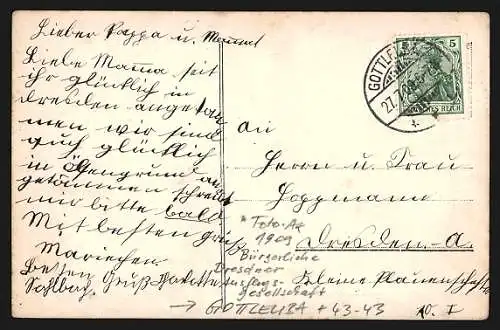 Lieber Pappa u. Mamma
Liebe Mamma seit
ihr glücklich in
Dresden angekom
men wir sind
auch glücklich
in
getommen schreibt
mir bitte bald
Mit besten Grüß
Mariechen
Besten Gruß
GOTTLEUBA
27.7.09
5
DEUTSCHES REICH
An
Herrn u. Frau
Hoppmann
Dresden-A.
Kleine Plauensche
* Foto-Ak
1909
Bürgerliche
Dresdner
Ausflugs-
gesellschaft
→ GOTTLEUBA + 43-43
10.I